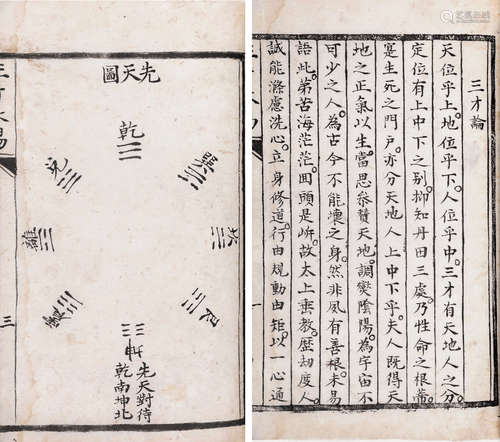 三才論
天位乎上。地位乎下。人位乎中。三才有天地人之分。
定位有上中下之别。抑知丹田三處。乃性命之根蒂。
寔生死之門戶。亦分天地人上中下乎。夫人既得天
地之正氣以生。當思叅贊天地。調燮陰陽。為宇宙不
可少之人。為古今不能壞之身。然非夙有善根。未易
語此。第苦海茫茫。囬頭是岍。故太上垂教。歷劫度人。
誠能滌慮洗心。立身修道。行由規動由矩。以一心通
先天圖
乾
兌
離
震
巽
坎
艮
坤
先天對待
乾南坤北
三